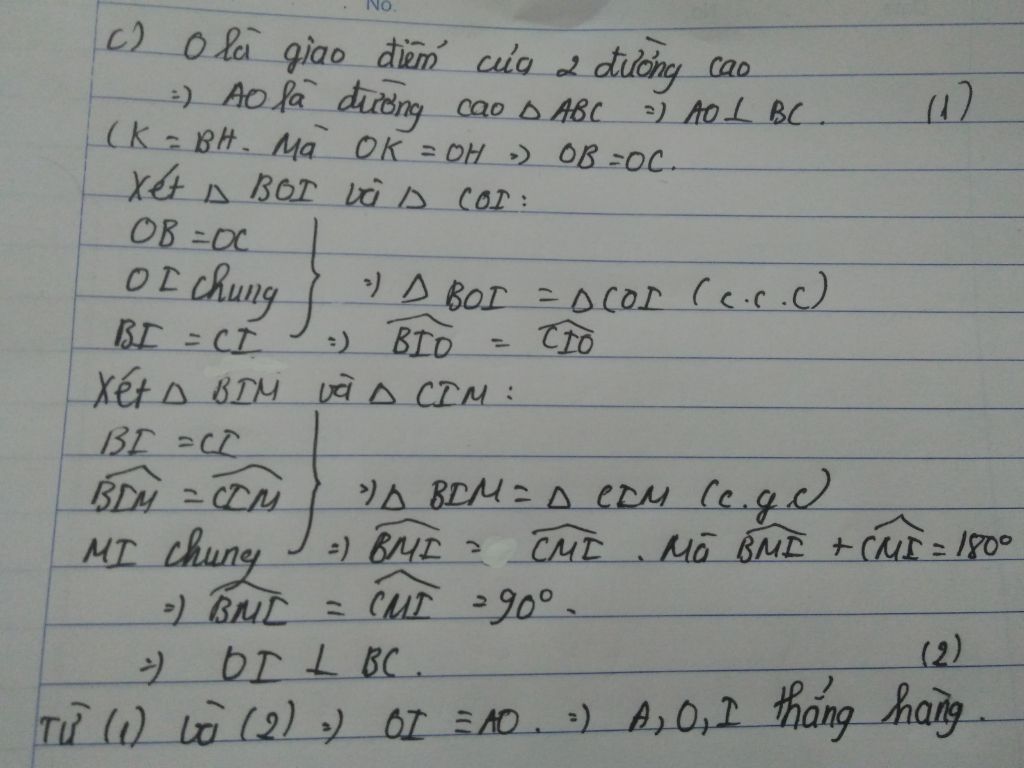 No.
c) O là giao điểm của 2 đường cao
=) AO là đường cao △ ABC =) AO ⊥ BC. (1)
CK = BH. Mà OK = OH =) OB = OC.
Xét △ BOI và △ COI:
OB = OC
OI chung =) △ BOI = △ COI (c.c.c)
BI = CI =) BIO = CIO
Xét △ BIM và △ CIM:
BI = CI
BIM = CIM =) △ BIM = △ CIM (c.g.c)
MI chung =) BMI = CMI. Mà BMI + CMI = 180°
=) BMI = CMI = 90°.
=) OI ⊥ BC. (2)
Từ (1) và (2) =) OI ≡ AO. =) A, O, I thẳng hàng.